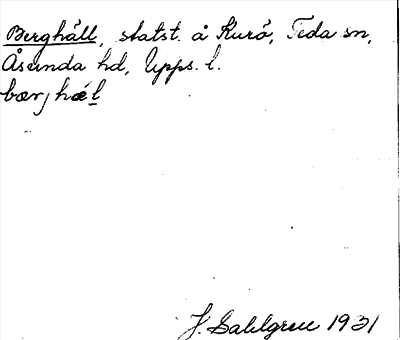 Berghäll, statst. å Kurö, Teda sn,
Åsunda hd, Upps. l.
bærjhæl
J. Sahlgren 1931